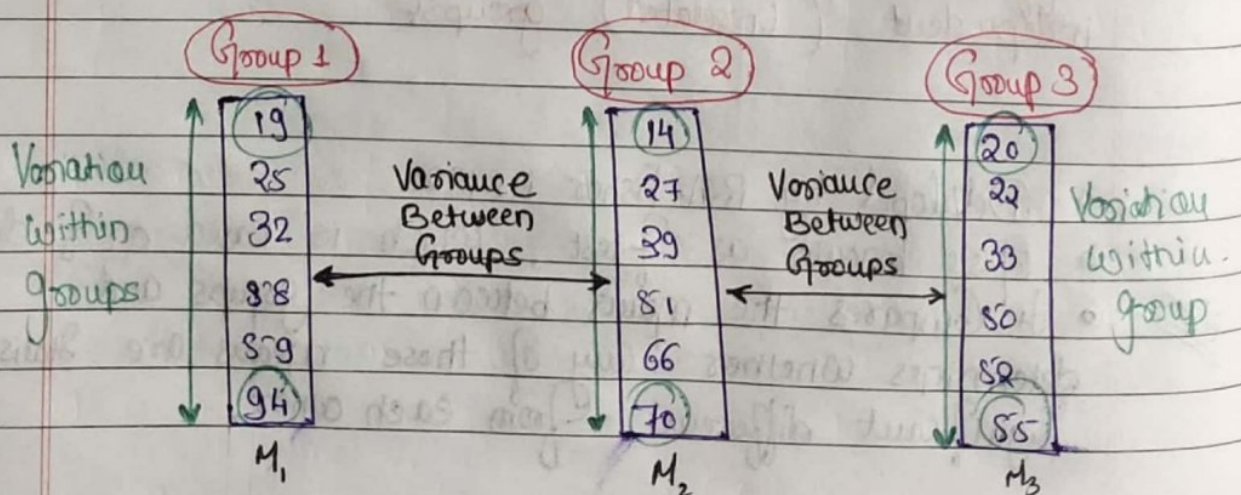 Group 1
Group 2
Group 3
Variation
within
groups
19
25
32
58
59
94
M₁
Variance
Between
Groups
14
27
39
51
66
70
M₂
Variance
Between
Groups
20
22
33
50
52
55
M₃
Variation
within
group